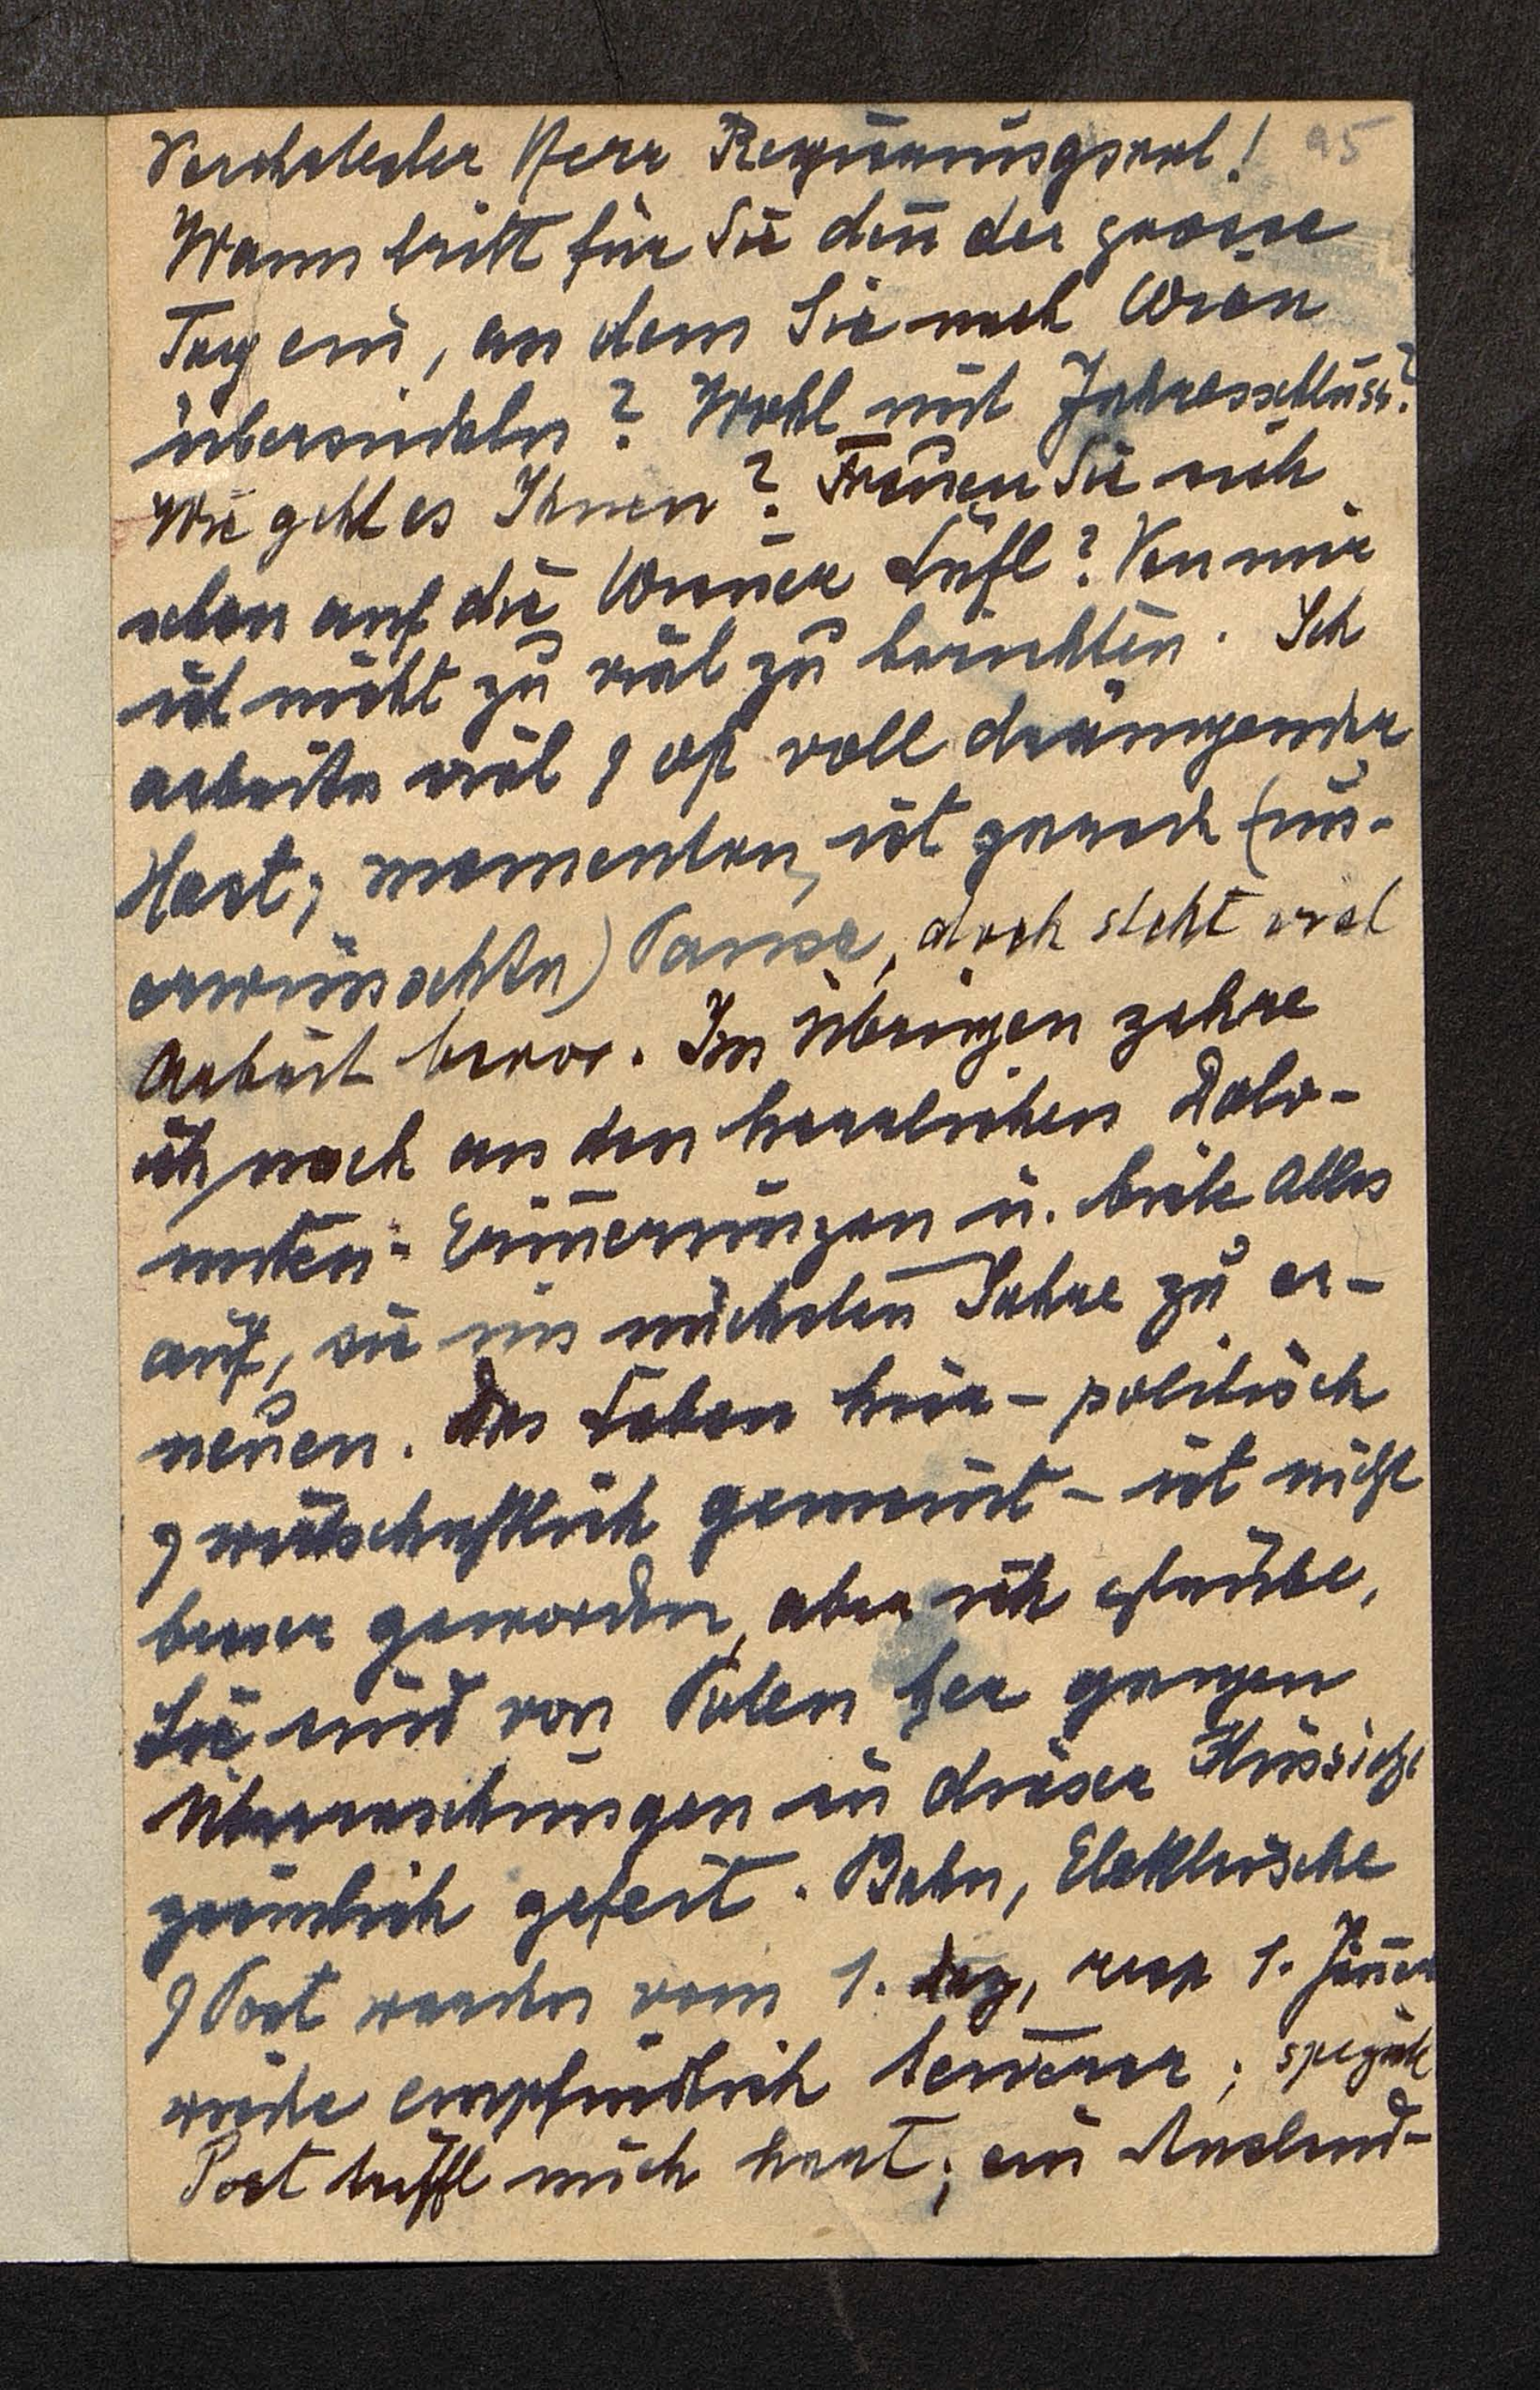 Verehrtester Herr Regierungsrat! 95
Wann tritt für Sie den̄ der grosse
Tag ein, an dem Sie nach Wien
übersiedeln? Wohl mit Jahresschluss?
Wie geht es Ihnen? Freuen Sie sich
schon auf die Wiener Luft? Von mir
ist nicht zu viel zu berichten. Ich
arbeite viel & oft voll drängender
Hast; momentan ist gerade (un-
erwünschte) Pause, doch steht viel
Arbeit bevor. Im Übrigen zehre
ich noch an den herrlichen Dolo-
miten-Erin̄erungen u. biete Alles
auf, sie im nächsten Jahre zu er-
neuen. Das Leben hier – politisch
& wirtschaftlich gemeint – ist nicht
besser geworden, aber ich glaube,
Sie sind von Polen her gegen
Überraschungen in dieser Hinsicht
ziemlich gefeit. Bahn, Elektrische
& Post werden vom 1. Dez, resp 1. Jän̄er
wieder empfindlich teuerer; speziell
Post trifft mich hart; ein Ausland-